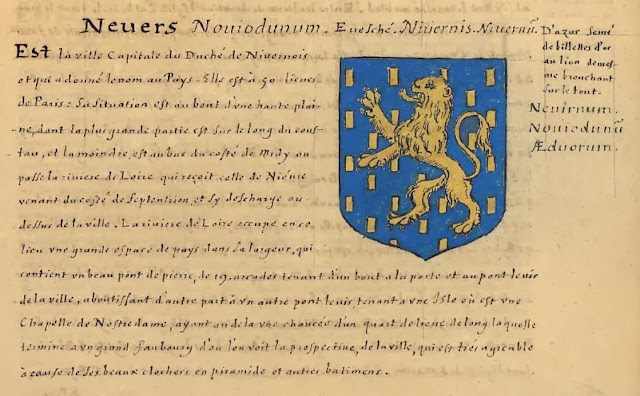 Nevers Nouiodunum. Euesché. Niuernis. Neueruũ
Est la ville Capitale du Duché de Nivernois
et qui a donné le nom au Pays. Elle est à 50 lieues
de Paris: Sa situation est au bout d'vne haute plai-
ne, dont la plus grande partie est sur le long du cous-
tau, et la moindre, est au bas du costé de Midy ou
passe la riviere de Loire qui reçoit celle de Niéure
venant du costé de Septentrion, et s'y descharge au-
dessus de la ville. La riviere de Loire occupe en ce
lieu vne grande espace de pays dans sa largeur, qui
contient vn beau pont de pierre, de 19. arcades tenant d'un bout a la porte et au pont levis
de la ville, aboutissant d'autre part à vn autre pont levis, tenant a vne Isle où est vne
Chapelle de Nostredame, ayant au dela vne chaucée d'un quart de lieue de long laquelle
termine a vn grand fauboury d'où l'on voit la prospective, de la ville, qui est trés agreable
à cause de ses beaux clochers en piramide et autres batimens.
D'azur Semé
de billettes d'or
au lion de mes-
me brouchant
sur le tout.
Nevirnum.
Nouiodunũ
Æduorum.